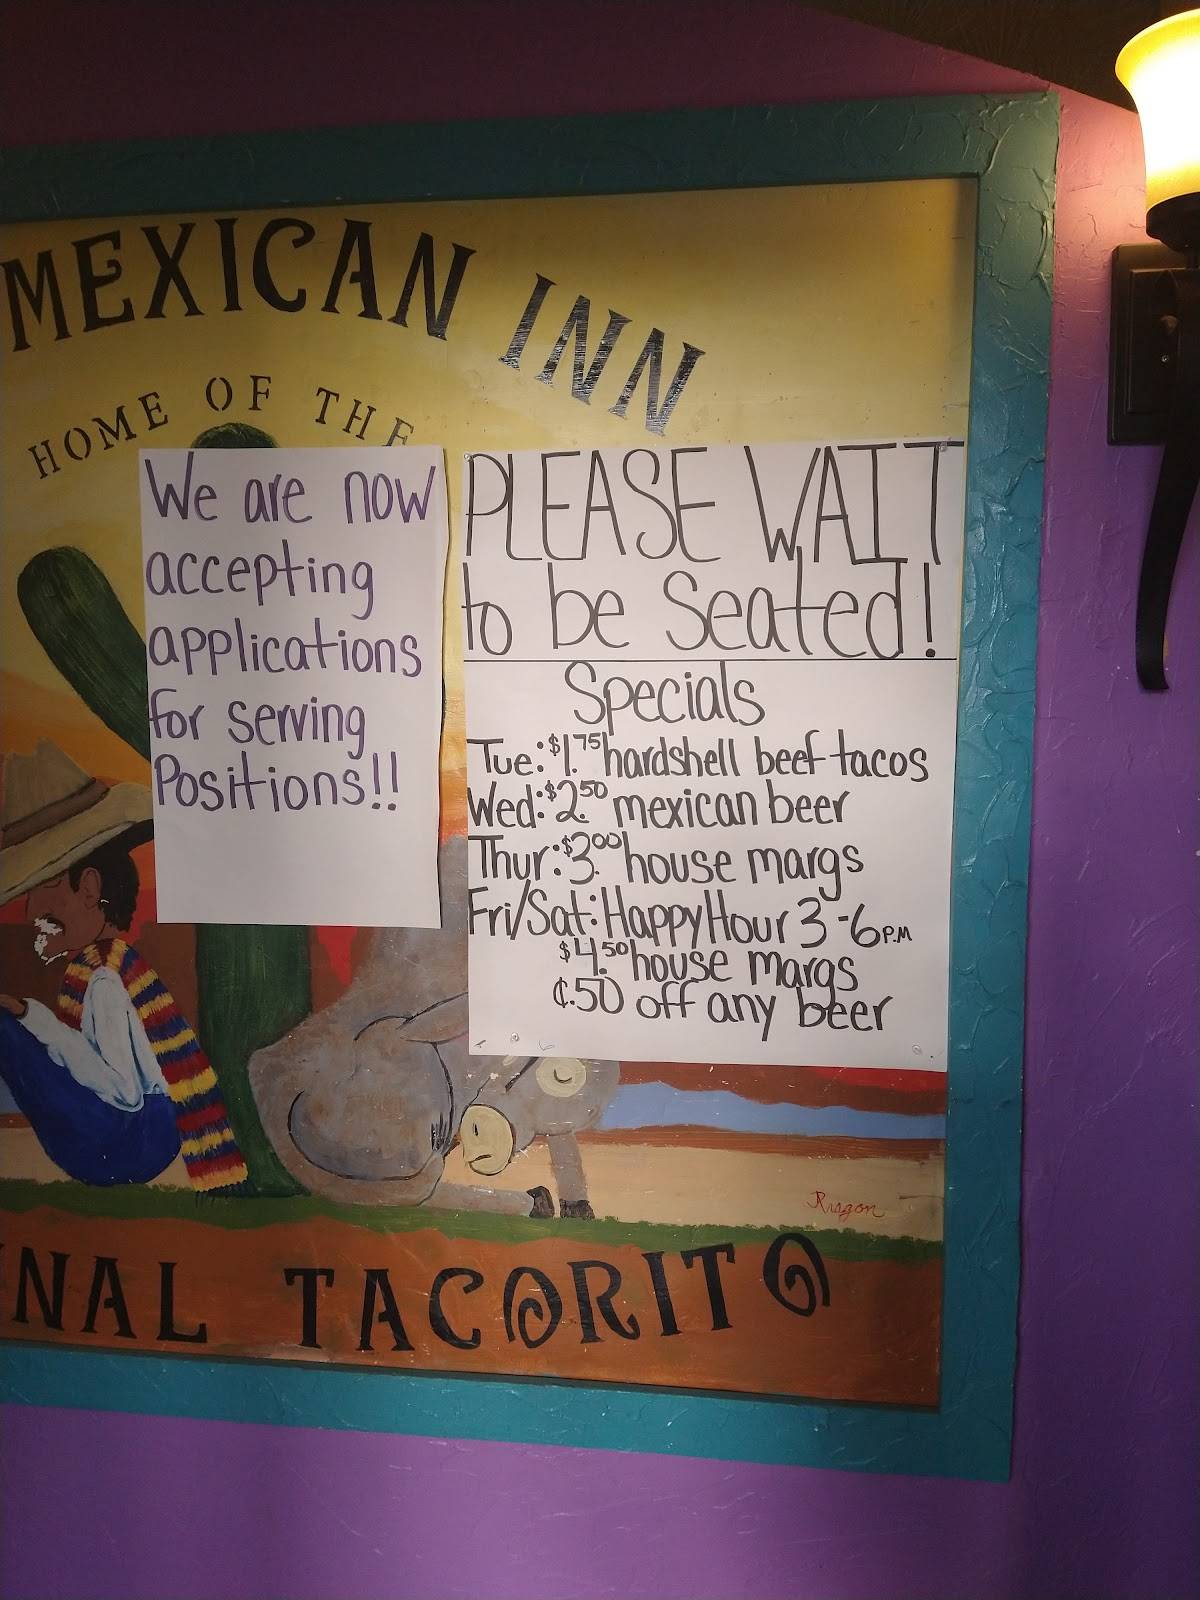 MEXICAN INN
HOME OF THE
We are now
accepting
applications
for serving
Positions!!
PLEASE WAIT
to be Seated!
Specials
Tue: $1.75 hardshell beef tacos
Wed: $2.50 mexican beer
Thur: $3.00 house margs
Fri/Sat: Happy Hour 3-6 P.M
$4.50 house margs
¢.50 off any beer
NAL TACORITO